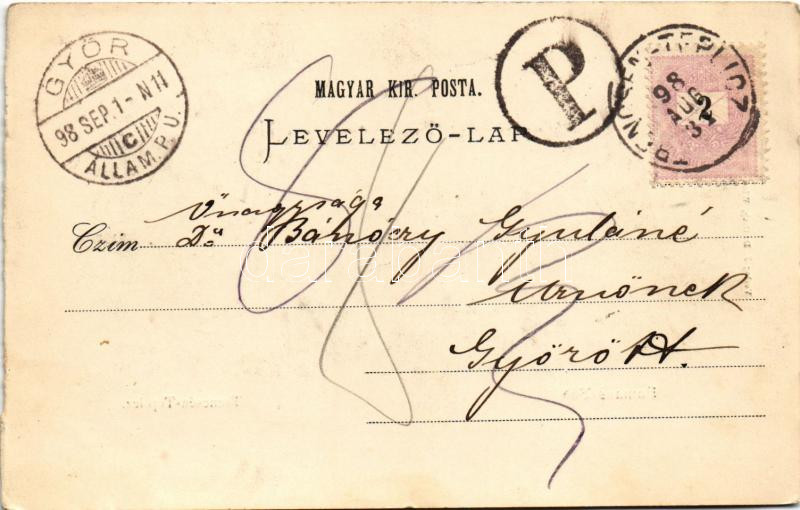 GYŐR
98 SEP. 1 - N 11
C
ÁLLAM. P. U.
P
TRENCSEN-TEPLICZ
98
AUG
31
2
MAGYAR KIR. POSTA.
LEVELEZŐ-LAP
Czim
Dr Gyuláné
Úrnőnek
Győrött.
darabanth